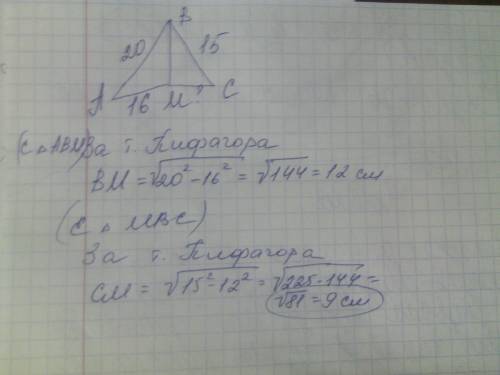 B
20 15
A 16 M ? C
(С △ABM) За т. Пифагора
BM = √20² - 16² = √144 = 12 см
(С △ MBC)
За т. Пифагора
CM = √15² - 12² = √225 - 144 =
√81 = 9 см